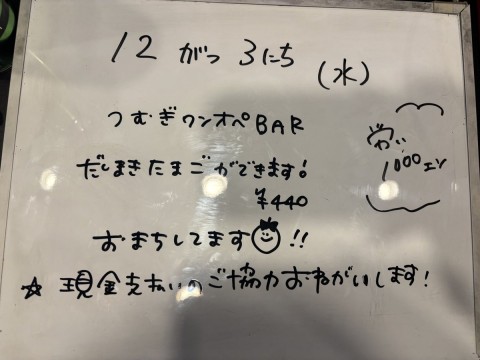 12 がつ 3にち (水)
つむぎワンオペBAR
だしまきたまごができます!
¥440
おまちしてます !!
☆ 現金支払いのご協力おねがいします!
1000エン